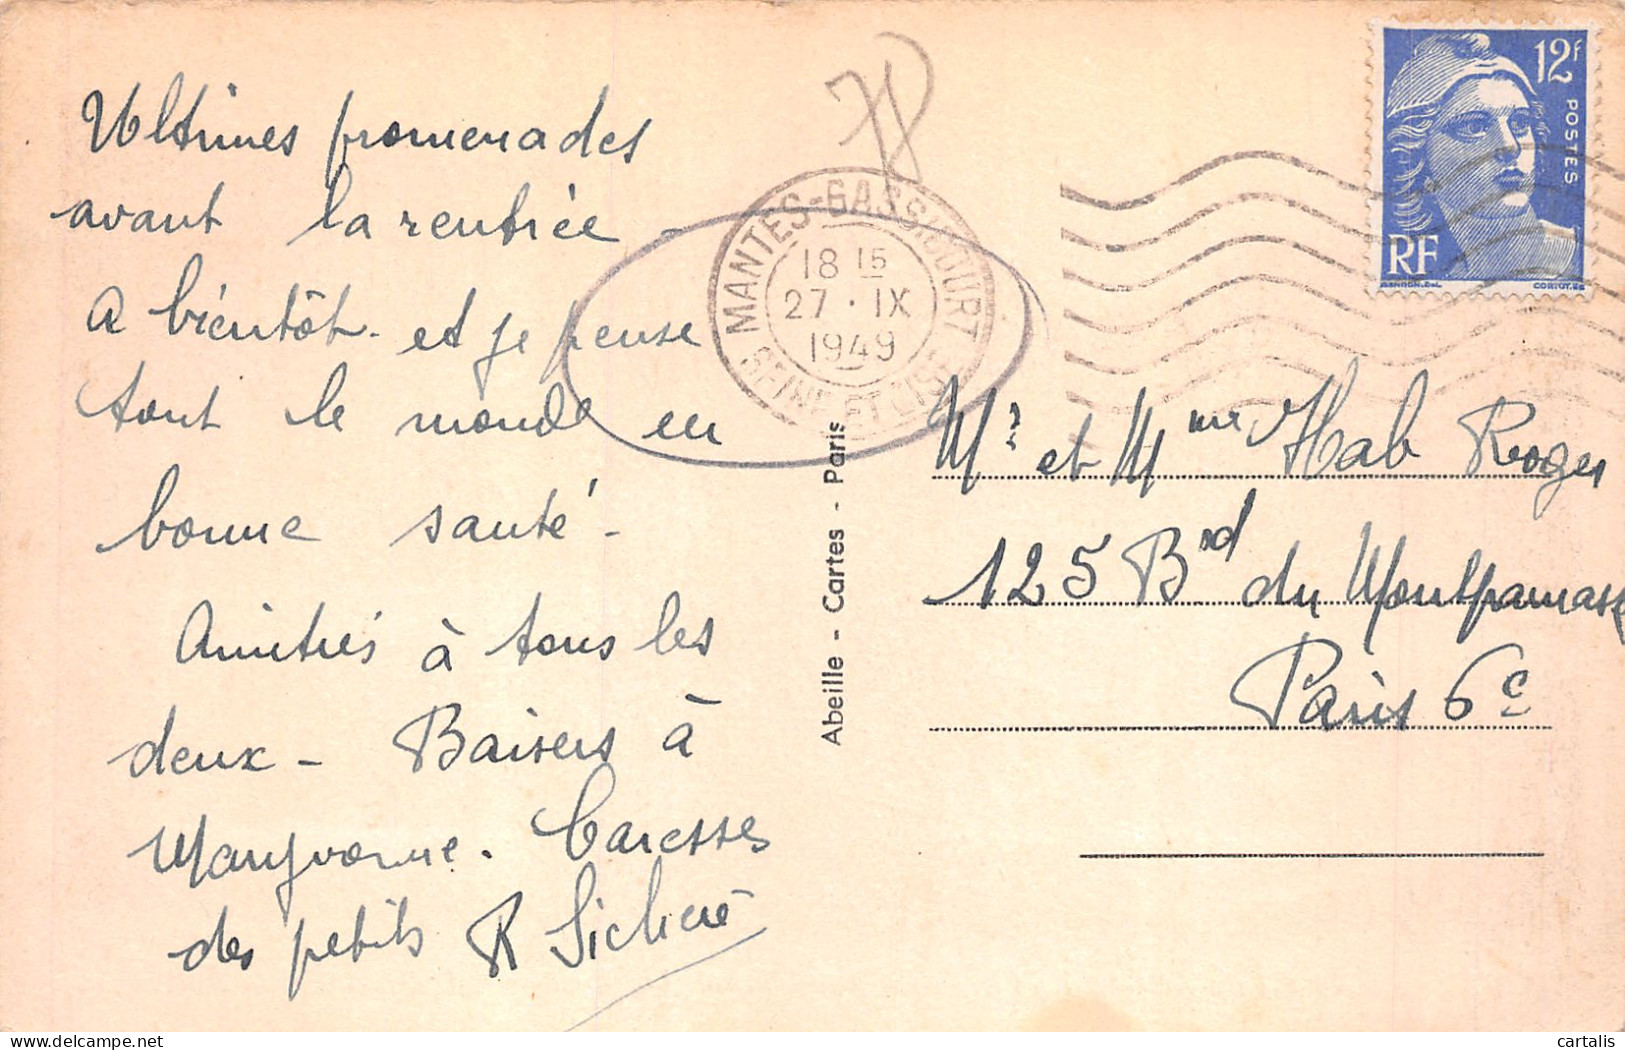 Ultimes promenades
avant la rentrée -
A bientôt - et je pense
tout le monde en
bonne santé -
Amitiés à tous les
deux - Baisers à
Maryvonne. Caresses
des petits R Sicheré
78
MANTES-GASSICOURT
18 15
27 · IX
1949
SEINE ET OISE
Abeille - Cartes - Paris
12F
POSTES
RF
GANDON.DEL.
CORTOT.SC
Mr et Mme Hab Roger
125 Brd du Montparnasse
Paris 6e
delcampe.net
cartalis